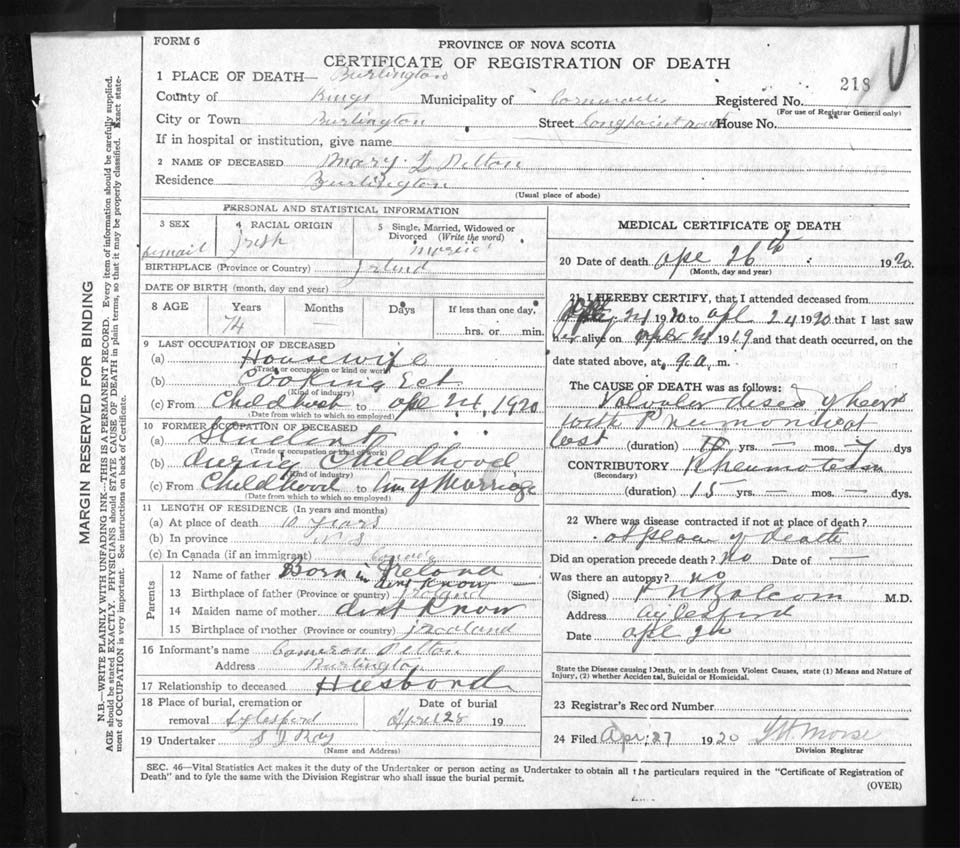 FORM 6
PROVINCE OF NOVA SCOTIA
CERTIFICATE OF REGISTRATION OF DEATH
218
1 PLACE OF DEATH— Burlington
County of Kings Municipality of Cornwallis Registered No.
(For use of Registrar General only)
City or Town Burlington Street House No.
If in hospital or institution, give name
2 NAME OF DECEASED Mary L
Residence Burlington
(Usual place of abode)
PERSONAL AND STATISTICAL INFORMATION
3 SEX
femail
4 RACIAL ORIGIN
Irish
5 Single, Married, Widowed or Divorced (Write the word)
BIRTHPLACE (Province or Country) Irland
DATE OF BIRTH (month, day and year)
8 AGE Years Months Days If less than one day,
74 — hrs. or min.
9 LAST OCCUPATION OF DECEASED
(a) Housewife
(Trade or occupation or kind or work)
(b) Cooking Ect
(Kind of industry)
(c) From Childhood to apl 24, 1920
(Date from which to which so employed)
10 FORMER OCCUPATION OF DECEASED
(a) Student
(Trade or occupation or kind of work)
(b) during Childhood
(Kind of industry)
(c) From Childhood to time of Marriage
(Date from which to which so employed)
11 LENGTH OF RESIDENCE (In years and months)
(a) At place of death 10 years
(b) In province N S
(c) In Canada (if an immigrant)
Parents
12 Name of father Born in Ireland
dont Know
13 Birthplace of father (Province or country)
14 Maiden name of mother dont Know
15 Birthplace of mother (Province or country)
16 Informant's name Cameron
Address Burlington
17 Relationship to deceased Husbord
18 Place of burial, cremation or removal
Date of burial
April 28 19
19 Undertaker S J Ray
(Name and Address)
MEDICAL CERTIFICATE OF DEATH
20 Date of death apl 26th 1920
(Month, day and year)
21 I HEREBY CERTIFY, that I attended deceased from
1920 to apl 24 1920 that I last saw
her alive on 1919 and that death occurred, on the
date stated above, at 9 a. m.
The CAUSE OF DEATH was as follows:
Valvular diseas of heart
with Pneumonia at
last (duration) yrs. — mos. 7 dys
CONTRIBUTORY Rheumatism
(Secondary)
(duration) 15 yrs. — mos. — dys.
22 Where was disease contracted if not at place of death?
at place of death
Did an operation precede death? no Date of —
Was there an autopsy? no
(Signed) M.D.
Address
Date
State the Disease causing Death, or in death from Violent Causes, state (1) Means and Nature of
Injury, (2) whether Accidental, Suicidal or Homicidal.
23 Registrar's Record Number
24 Filed Apr. 27 1920 Morse
Division Registrar
SEC. 46—Vital Statistics Act makes it the duty of the Undertaker or person acting as Undertaker to obtain all the particulars required in the "Certificate of Registration of
Death" and to fyle the same with the Division Registrar who shall issue the burial permit.
(OVER)
MARGIN RESERVED FOR BINDING
N.B.—WRITE PLAINLY WITH UNFADING INK—THIS IS A PERMANENT RECORD. Every item of information should be carefully supplied.
AGE should be stated EXACTLY. PHYSICIANS should STATE CAUSE OF DEATH in plain terms, so that it may be properly classified. Exact state-
ment of OCCUPATION is very important. See instructions on back of Certificate.